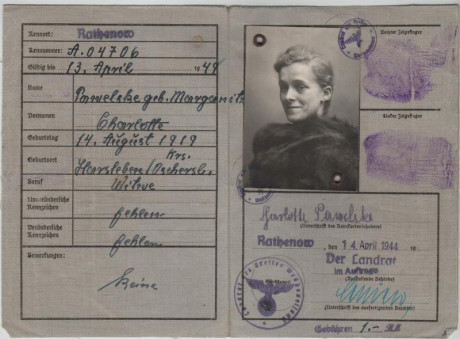 Kennort: Rathenow
Kennnummer: A.04706
Gültig bis 13. April 1949
Name Pawelske geb. Morganitz
Vornamen Charlotte
Geburtstag 14. August 1919
Geburtsort Horsleben / Krs. Oschersl.
Beruf Witwe
Unveränderliche Kennzeichen fehlen
Veränderliche Kennzeichen fehlen
Bemerkungen: Keine
Rechter Zeigefinger
Linker Zeigefinger
Charlotte Pawelske
(Unterschrift des Kennkarteninhabers)
Rathenow, den 14. April 1944
Der Landrat
im Auftrage
(Ausstellende Behörde)
(Unterschrift des ausfertigenden Beamten)
Gebühren 1.- RM